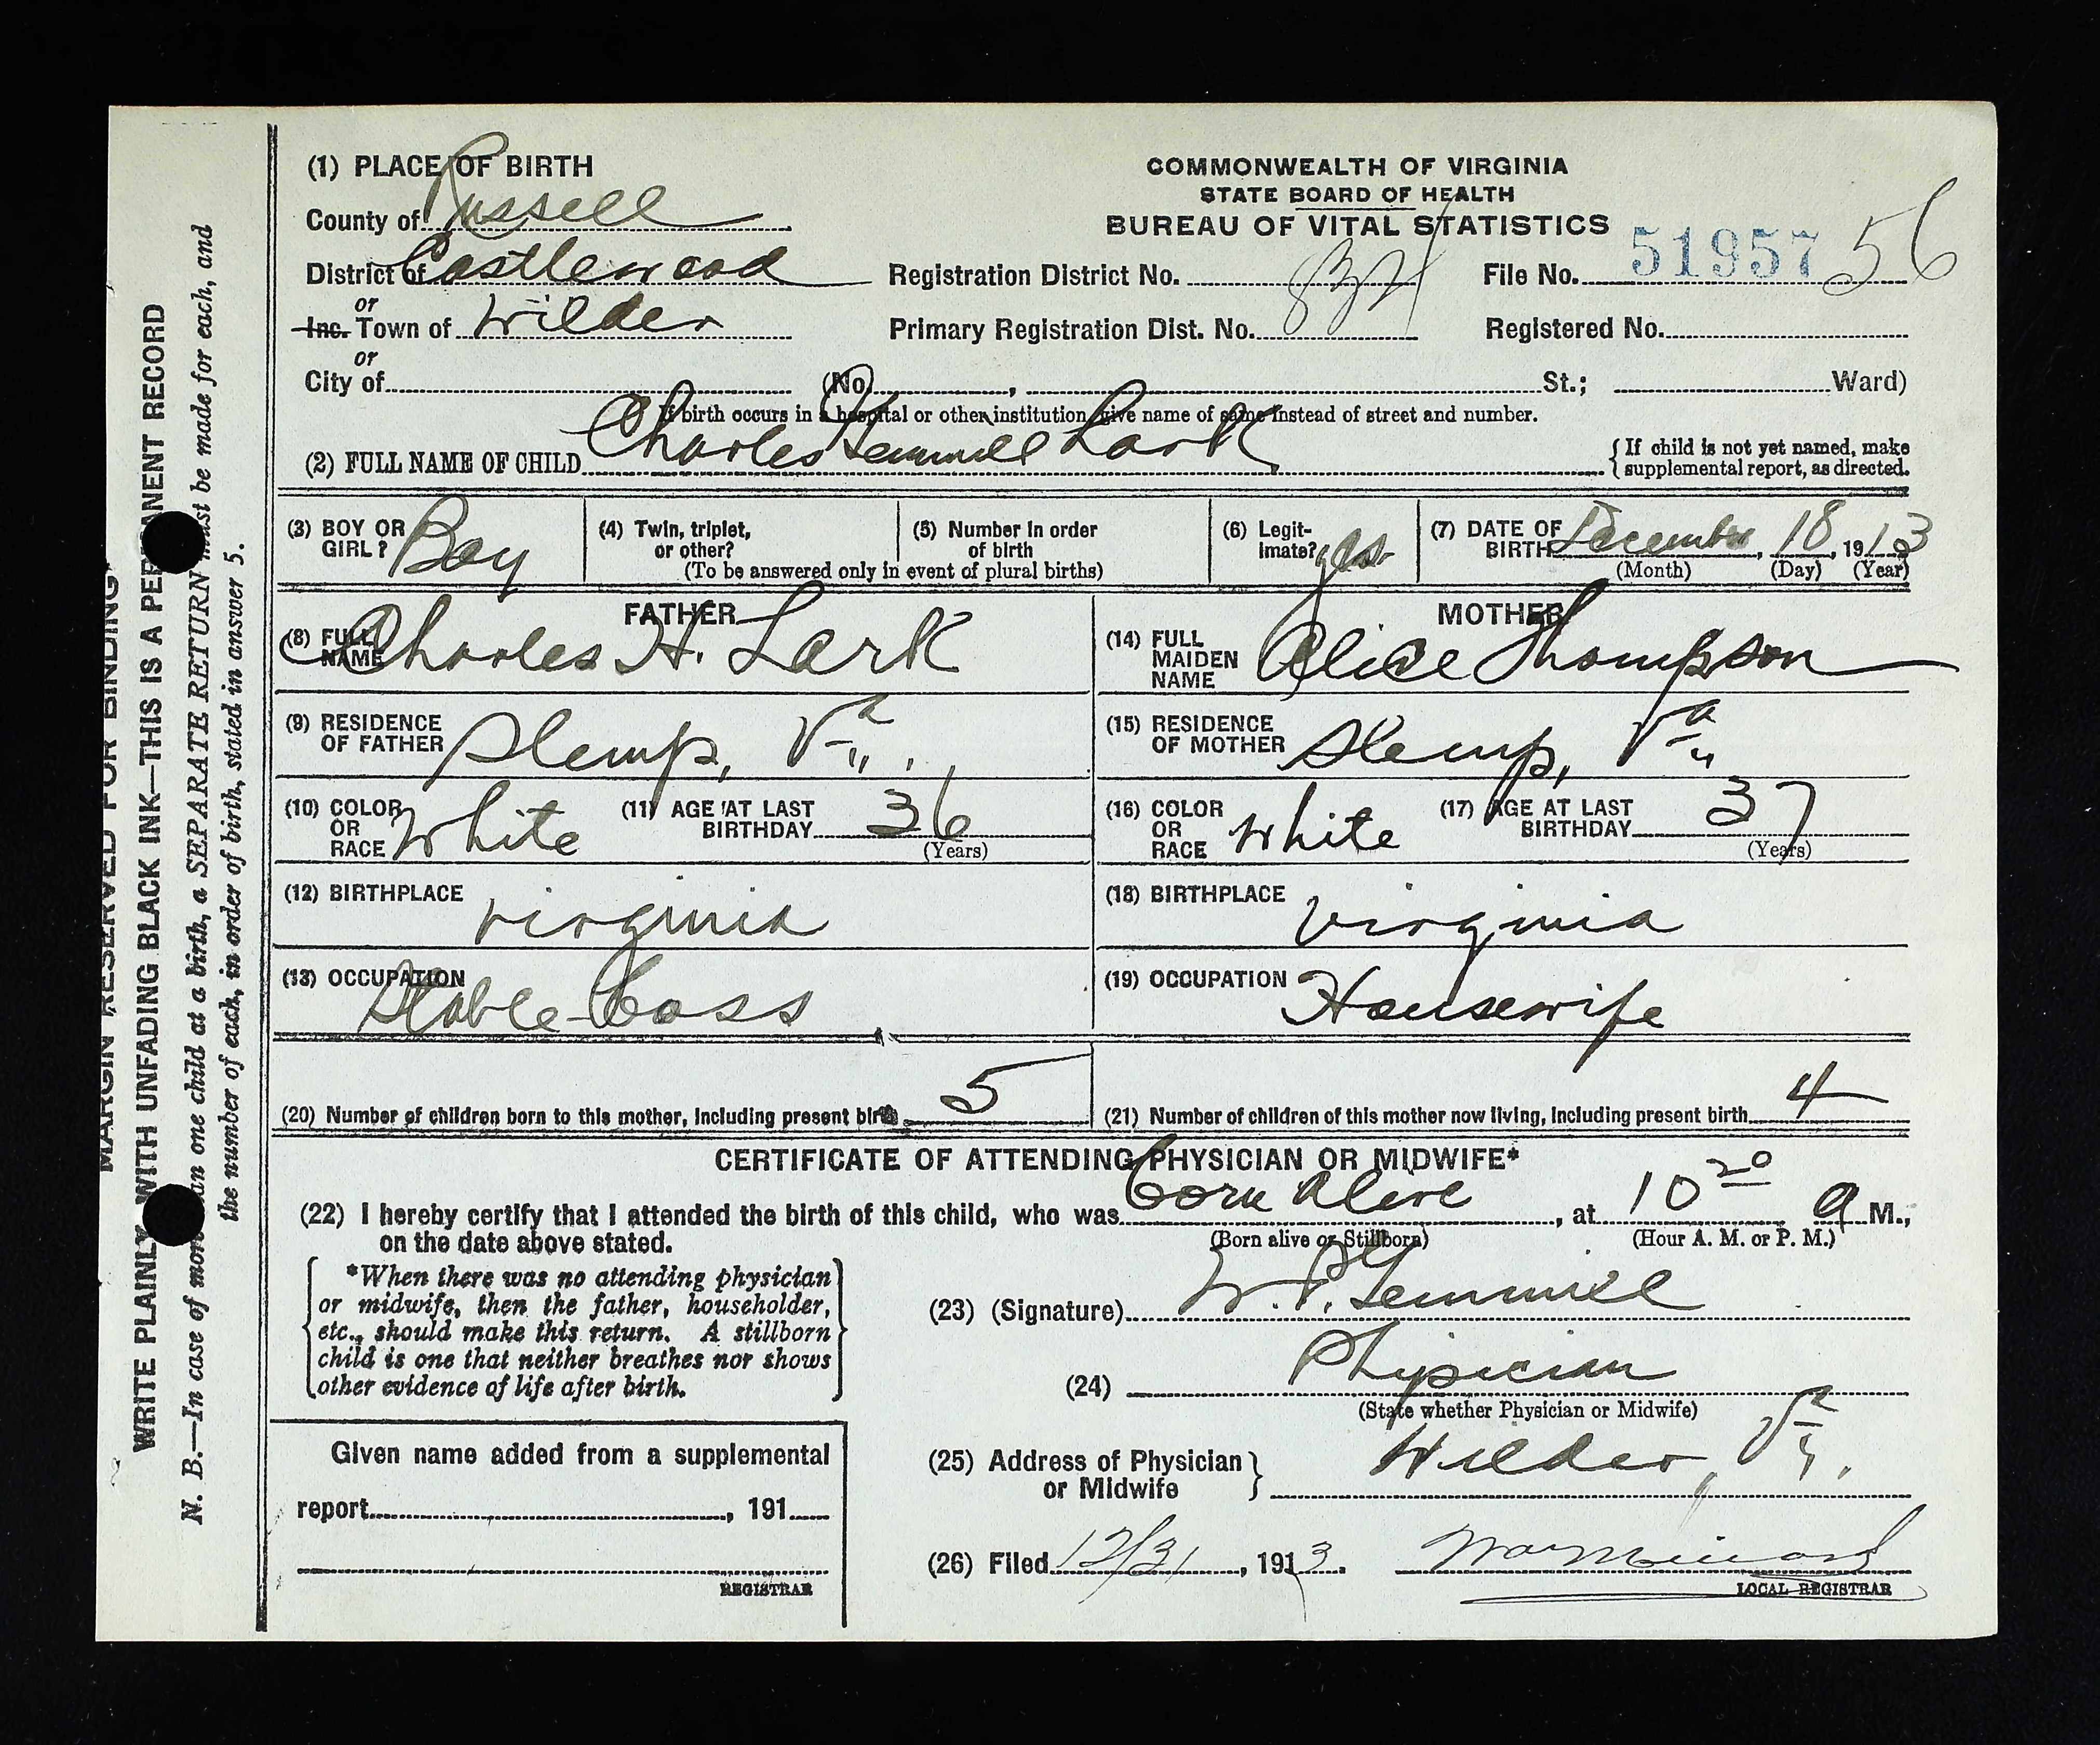 MARGIN RESERVED FOR BINDING
WRITE PLAINLY WITH UNFADING BLACK INK—THIS IS A PERMANENT RECORD
N. B.—In case of more than one child at a birth, a SEPARATE RETURN must be made for each, and
the number of each, in order of birth, stated in answer 5.
(1) PLACE OF BIRTH
County of Russell
District of Castlewood
or
Inc. Town of Wilder
or
City of (No. , St.; Ward)
COMMONWEALTH OF VIRGINIA
STATE BOARD OF HEALTH
BUREAU OF VITAL STATISTICS
Registration District No. File No. 51957 56
Primary Registration Dist. No. Registered No.
If birth occurs in a hospital or other institution, give name of same instead of street and number.
(2) FULL NAME OF CHILD Charles Gemmill Lark { If child is not yet named, make
supplemental report, as directed.
(3) BOY OR GIRL? Boy
(4) Twin, triplet, or other?
(5) Number in order of birth
(To be answered only in event of plural births)
(6) Legitimate? yes
(7) DATE OF BIRTH December, 18, 1913
(Month) (Day) (Year)
FATHER
(8) FULL NAME Charles H. Lark
(9) RESIDENCE OF FATHER Slemp, Va.
(10) COLOR OR RACE White (11) AGE AT LAST BIRTHDAY 36
(Years)
(12) BIRTHPLACE Virginia
(13) OCCUPATION Stable-boss
MOTHER
(14) FULL MAIDEN NAME Alice Thompson
(15) RESIDENCE OF MOTHER Slemp, Va.
(16) COLOR OR RACE White (17) AGE AT LAST BIRTHDAY 37
(Years)
(18) BIRTHPLACE Virginia
(19) OCCUPATION Housewife
(20) Number of children born to this mother, including present birth 5
(21) Number of children of this mother now living, including present birth 4
CERTIFICATE OF ATTENDING PHYSICIAN OR MIDWIFE*
(22) I hereby certify that I attended the birth of this child, who was born alive, at 10 20 a M.,
(Born alive or Stillborn) (Hour A. M. or P. M.)
on the date above stated.
*When there was no attending physician
or midwife, then the father, householder,
etc., should make this return. A stillborn
child is one that neither breathes nor shows
other evidence of life after birth.
(23) (Signature) W. P. Gemmill
(24) Physician
(State whether Physician or Midwife)
(25) Address of Physician or Midwife } Wilder, Va.
Given name added from a supplemental
report , 191
REGISTRAR
(26) Filed 12/31, 1913.
LOCAL REGISTRAR